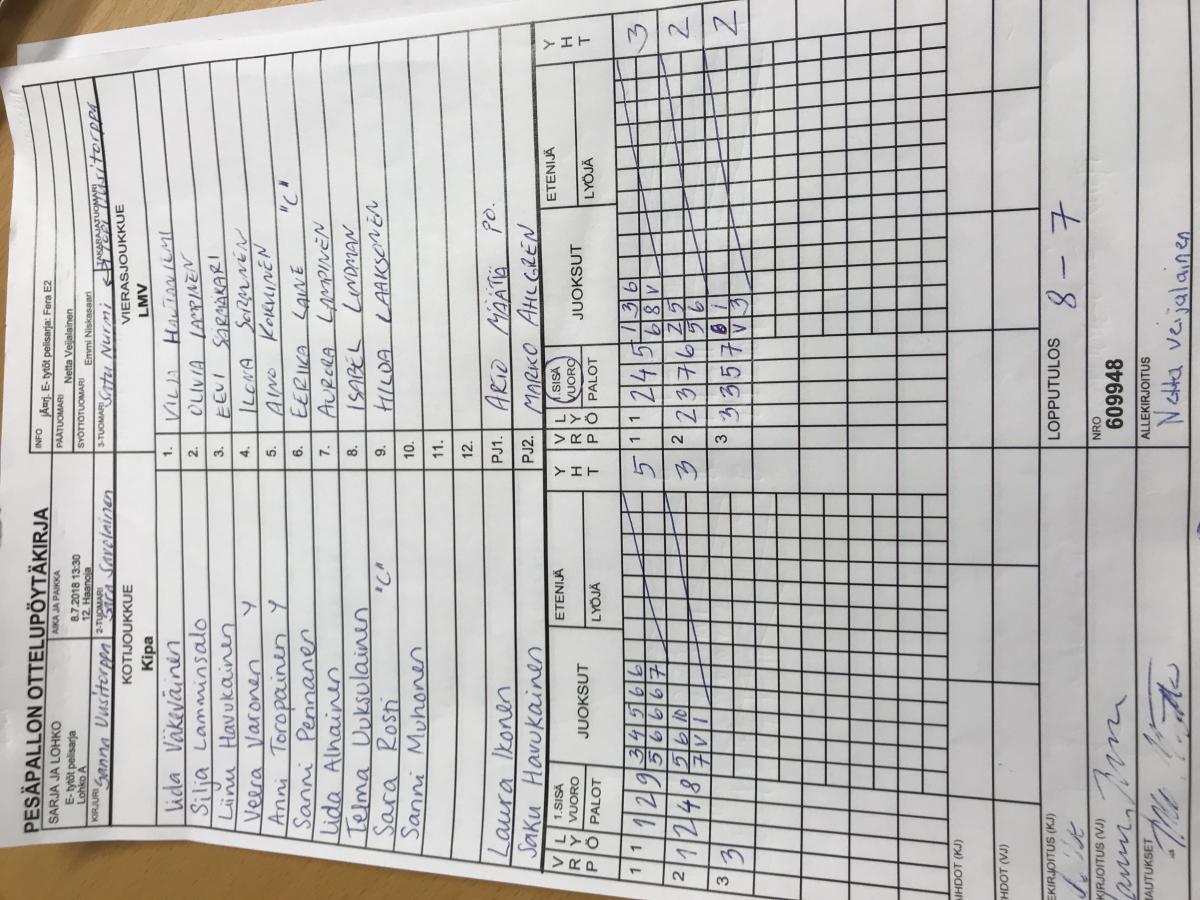 PESÄPALLON OTTELUPÖYTÄKIRJA
SARJA JA LOHKO
E- tytöt pelisarja
Lohko A
AIKA JA PAIKKA
8.7.2018 13:30
12, Haanoja
INFO jÄ¤rj. E- tytöt pelisarja: Fera E2
PÄÄTUOMARI Netta Veijalainen
SYÖTTÖTUOMARI Emmi Niskasaari
KIRJURI Sanna Uusitorppa
2-TUOMARI Sara Savolainen
3-TUOMARI Satu Nurmi
TAKARAJATUOMARI
KOTIJOUKKUE
Kipa
VIERASJOUKKUE
LMV
Iida Väkeväinen
Silja Lamminsalo
Liinu Havukainen
Veera Varonen Y
Anni Toropainen Y
Sanni Penmanen
Iida Alhainen
Telma Uuksulainen
Sara Rosti "C"
Sanni Muhonen
Laura Ikonen
Saku Havukainen
1. VILJA HAUTANIEMI
2. OLIVIA LAMPINEN
3. EEVI SORMAKARI
4. ILONA SORMUNEN
5. AINO KORHINEN
6. EERIKA LAINE "C"
7. AURORA LAMPINEN
8. ISABEL LINDMAN
9. HILDA LAAKSONEN
10.
11.
12.
PJ1. ARTO MÄÄTTÄ PO.
PJ2. MARKO AHLGREN
V R P
L Y Ö
1.SISÄ VUORO
PALOT
JUOKSUT
ETENIJÄ
LYÖJÄ
Y H T
V R P
L Y Ö
1.SISÄ VUORO
PALOT
JUOKSUT
ETENIJÄ
LYÖJÄ
Y H T
1 1 1 2 9 3 4 5 6 6 5
5 6 6 6 7
2 1 2 4 8 5 6 10 3
7 V 1
3 3
1 1 2 4 5 1 3 6 3
6 8 V
2 2 3 7 6 2 5 2
5 6
3 3 3 5 7 6 1 2
V 3
IHDOT (KJ)
HDOT (VJ)
EKIRJOITUS (KJ)
LOPPUTULOS 8 - 7
KIRJOITUS (VJ)
NRO
609948
AUTUKSET
ALLEKIRJOITUS
Netta Veijalainen